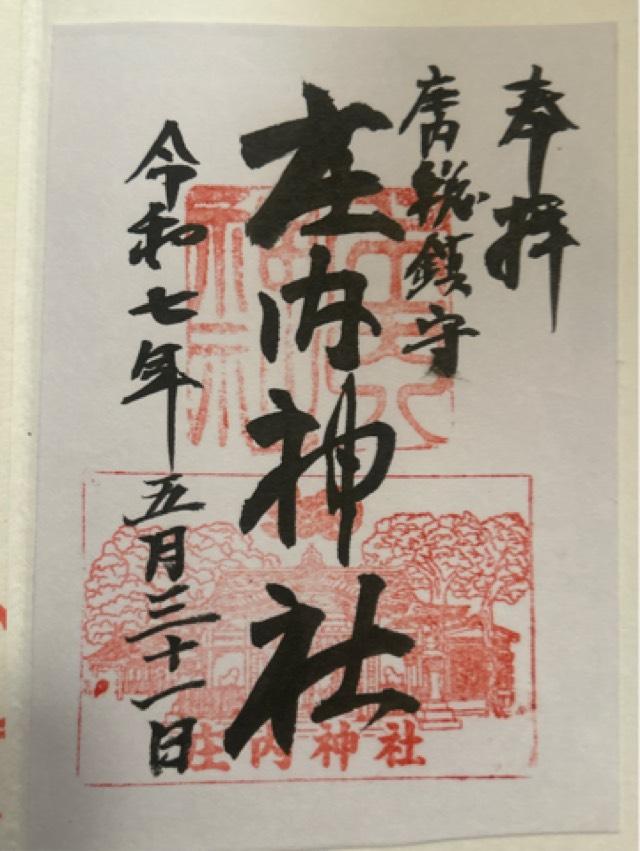 奉拝
庄内総鎮守
庄内神社
令和七年五月三十一日
庄内神社